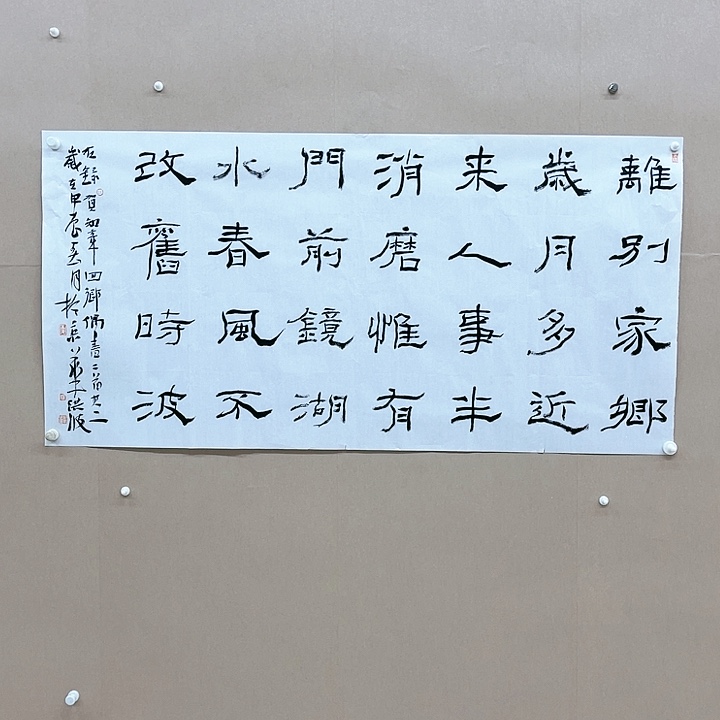 離別家鄉
歲月多近
来人事半
消磨惟有
門前鏡湖
水春風不
改舊時波
右錄賀知章回鄉偶書二首其二
歲在甲辰